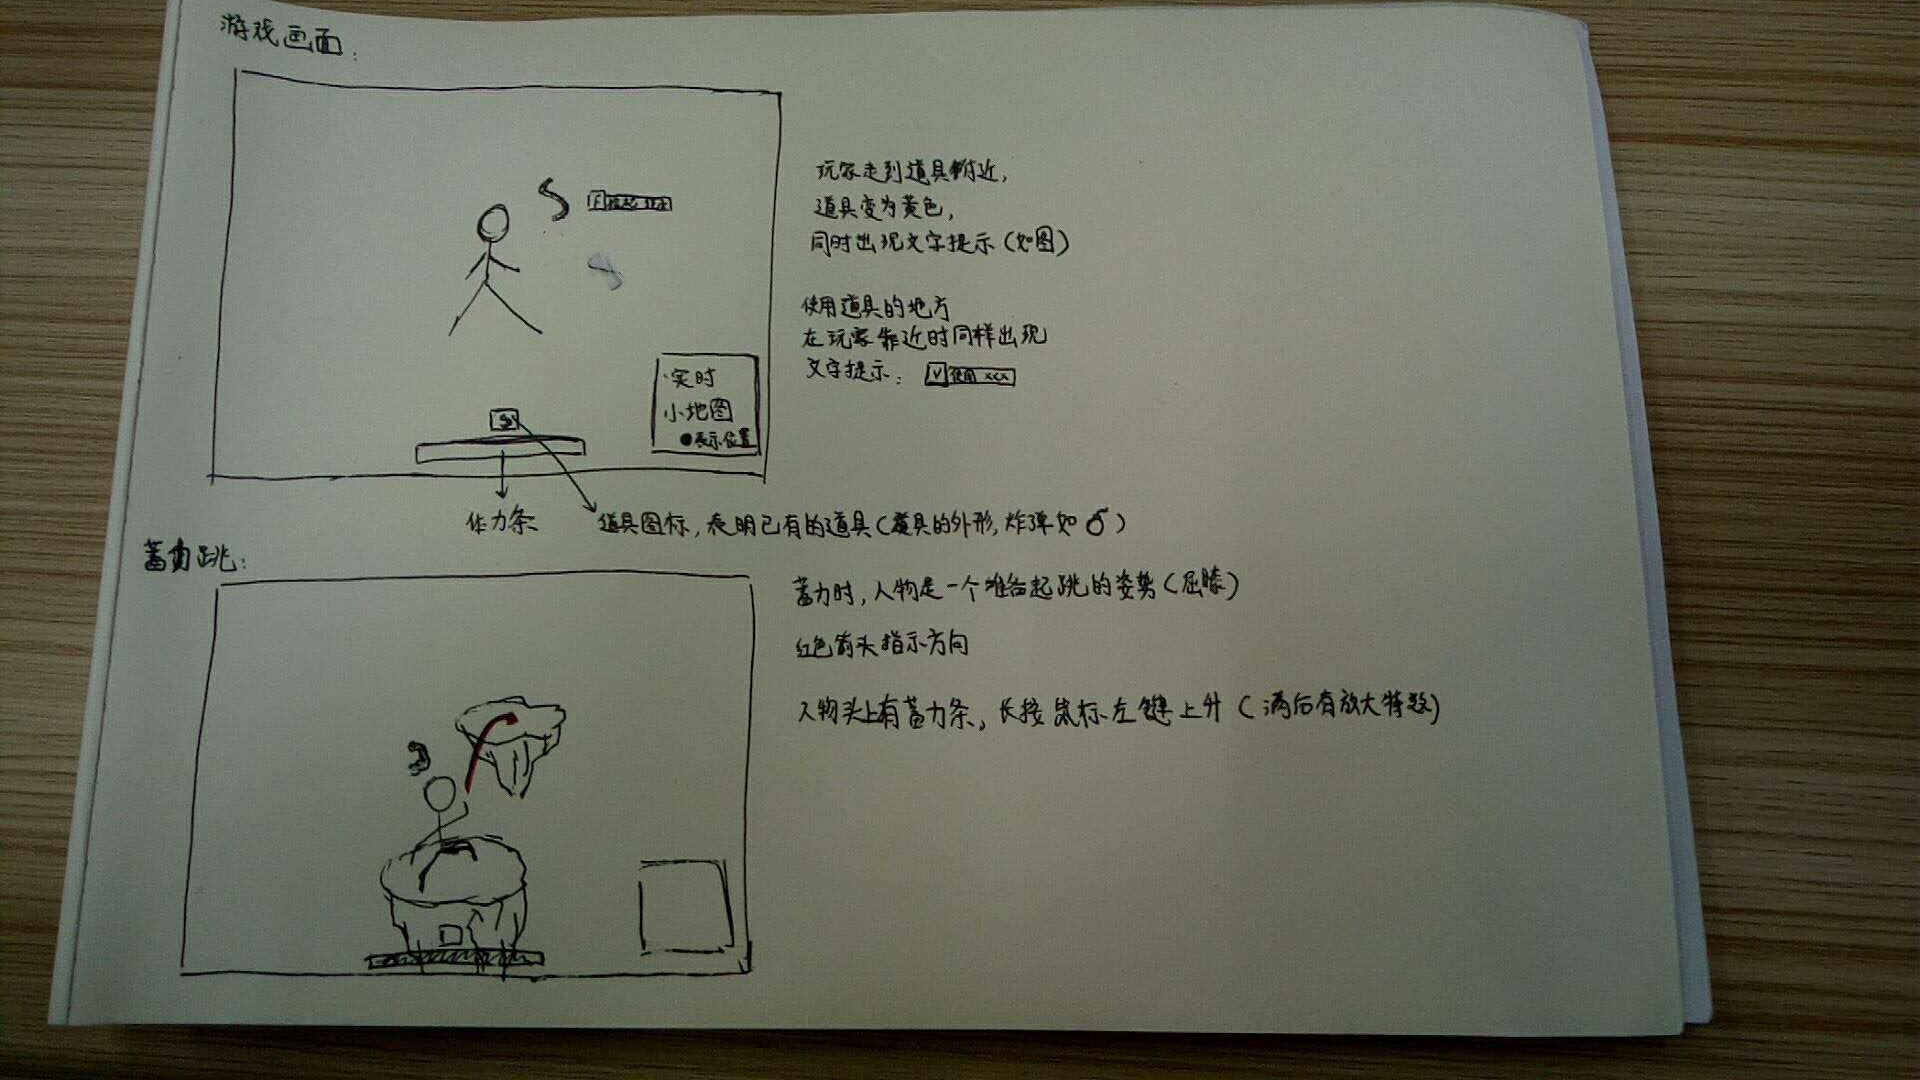 游戏画面:
玩家走到道具附近,
道具变为黄色,
同时出现文字提示(如图)
F 拾起
使用道具的地方
在玩家靠近时同样出现
文字提示: V 使用 xxx
实时
小地图
●表示位置
体力条
道具图标,表明已有的道具(道具的外形,炸弹如)
蓄力跳:
蓄力时,人物是一个准备起跳的姿势(屈膝)
红色箭头指示方向
人物头上有蓄力条,长按鼠标左键上升(满后有放大特效)